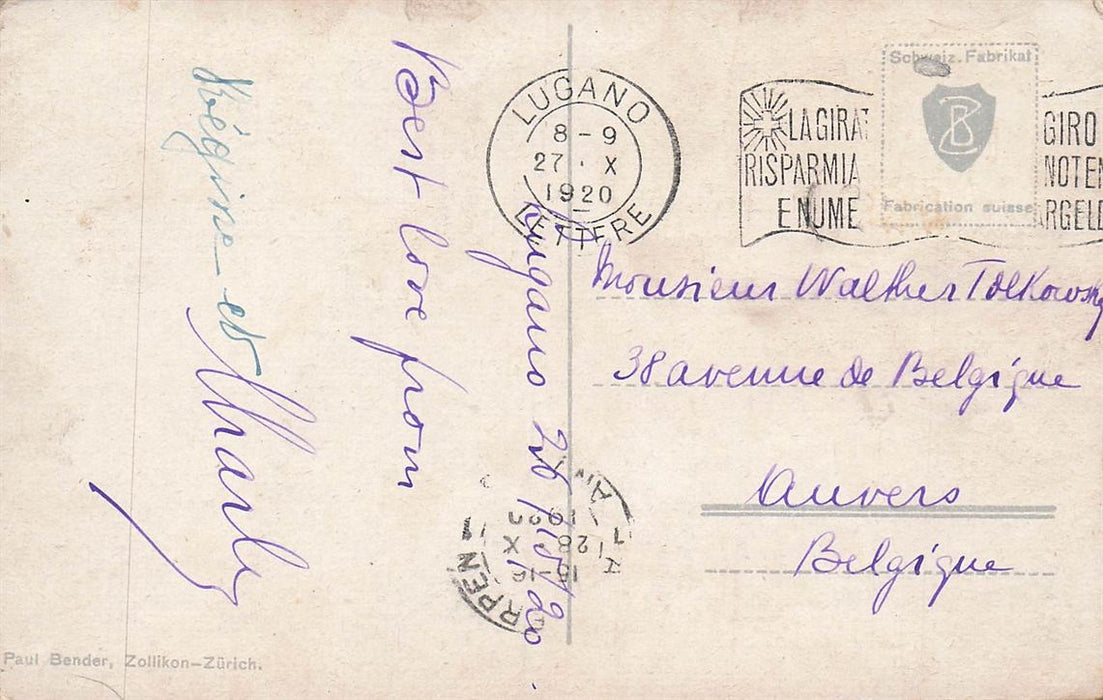 Lugano 26/10/20
Best love from
Régine et
Charly
Paul Bender, Zollikon-Zürich.
LUGANO
8-9
27·X
1920
LETTERE
LA GIRAT
RISPARMIA
E NUME
GIRO
NOTEN
ARGELD
Schweiz. Fabrikat
Fabrication suisse
Monsieur Walther Tolkowsky
38 avenue de Belgique
Anvers
Belgique
ANT
RPEN 1
28 X
1920